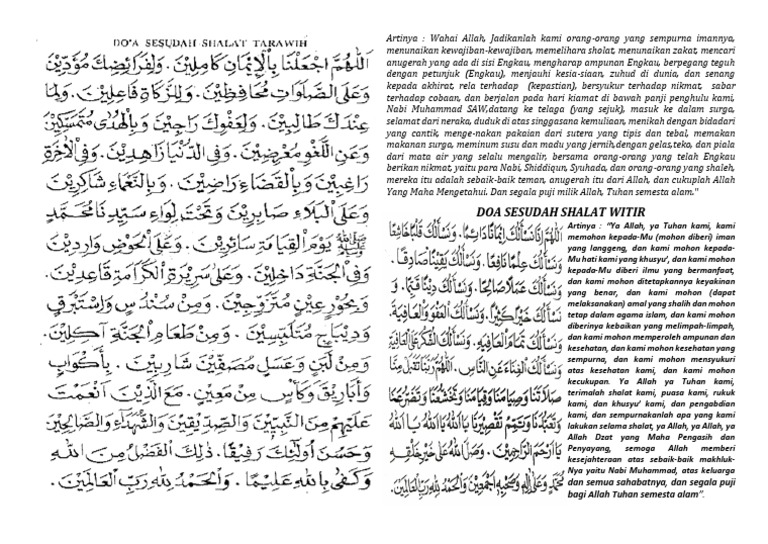 DO'A SESUDAH SHALAT TARAWIH
اَللّٰهُمَّ اجْعَلْنَا بِالْإِيْمَانِ كَامِلِيْنَ. وَلِفَرَائِضِكَ مُؤَدِّيْنَ
وَعَلَى الصَّلَوَاتِ مُحَافِظِيْنَ. وَلِلزَّكَاةِ فَاعِلِيْنَ. وَلِمَا
عِنْدَكَ طَالِبِيْنَ. وَلِعَفْوِكَ رَاجِيْنَ وَبِالْهُدَى مُتَمَسِّكِيْنَ
وَعَنِ اللَّغْوِ مُعْرِضِيْنَ. وَفِى الدُّنْيَا زَاهِدِيْنَ. وَفِى الْآخِرَةِ
رَاغِبِيْنَ وَبِالْقَضَاءِ رَاضِيْنَ. وَبِالنَّعْمَاءِ شَاكِرِيْنَ
وَعَلَى الْبَلَاءِ صَابِرِيْنَ وَتَحْتَ لِوَاءِ سَيِّدِنَا مُحَمَّدٍ
ﷺ يَوْمَ الْقِيَامَةِ سَائِرِيْنَ. وَعَلَى الْحَوْضِ وَارِدِيْنَ
وَفِى الْجَنَّةِ دَاخِلِيْنَ. وَعَلَى سَرِيْرَةِ الْكَرَامَةِ قَاعِدِيْنَ.
وَبِحُوْرٍ عِيْنٍ مُتَزَوِّجِيْنَ. وَمِنْ سُنْدُسٍ وَاِسْتَبْرَقٍ
وَدِيْبَاجٍ مُتَلَبِّسِيْنَ. وَمِنْ طَعَامِ الْجَنَّةِ آكِلِيْنَ.
وَمِنْ لَبَنٍ وَعَسَلٍ مُصَفَّيْنِ شَارِبِيْنَ. بِأَكْوَابٍ
وَأَبَارِيْقَ وَكَأْسٍ مِنْ مَعِيْنٍ. مَعَ الَّذِيْنَ اَنْعَمْتَ
عَلَيْهِمْ مِنَ النَّبِيِّيْنَ وَالصِّدِّيْقِيْنَ وَالشُّهَدَاءِ وَالصَّالِحِيْنَ
وَحَسُنَ اُولٰئِكَ رَفِيْقًا. ذٰلِكَ الْفَضْلُ مِنَ اللهِ
وَكَفَى بِاللهِ عَلِيْمًا. وَالْحَمْدُ لِلّٰهِ رَبِّ الْعَالَمِيْنَ.
Artinya : Wahai Allah, Jadikanlah kami orang-orang yang sempurna imannya,
menunaikan kewajiban-kewajiban, memelihara sholat, menunaikan zakat, mencari
anugerah yang ada di sisi Engkau, mengharap ampunan Engkau, berpegang teguh
dengan petunjuk (Engkau), menjauhi kesia-siaan, zuhud di dunia, dan senang
kepada akhirat, rela terhadap (kepastian), bersyukur terhadap nikmat, sabar
terhadap cobaan, dan berjalan pada hari kiamat di bawah panji penghulu kami,
Nabi Muhammad SAW,datang ke telaga (yang sejuk), masuk ke dalam surga,
selamat dari neraka, duduk di atas singgasana kemuliaan, menikah dengan bidadari
yang cantik, menge-nakan pakaian dari sutera yang tipis dan tebal, memakan
makanan surga, meminum susu dan madu yang jernih,dengan gelas,teko, dan piala
dari mata air yang selalu mengalir, bersama orang-orang yang telah Engkau
berikan nikmat, yaitu para Nabi, Shiddiqun, Syuhada, dan orang-orang yang shaleh,
mereka itu adalah sebaik-baik teman, anugerah itu dari Allah, dan cukuplah Allah
Yang Maha Mengetahui. Dan segala puji milik Allah, Tuhan semesta alam."
DOA SESUDAH SHALAT WITIR
اَللّٰهُمَّ اِنَّا نَسْأَلُكَ اِيْمَانًا دَائِمًا. وَنَسْأَلُكَ قَلْبًا خَاشِعًا
وَنَسْأَلُكَ عِلْمًا نَافِعًا. وَنَسْأَلُكَ يَقِيْنًا صَادِقًا.
وَنَسْأَلُكَ عَمَلًا صَالِحًا. وَنَسْأَلُكَ دِيْنًا قَيِّمًا. وَ
نَسْأَلُكَ خَيْرًا كَثِيْرًا. وَنَسْأَلُكَ الْعَفْوَ وَالْعَافِيَةَ
وَنَسْأَلُكَ تَمَامَ الْعَافِيَةِ. وَنَسْأَلُكَ الشُّكْرَ عَلَى الْعَافِيَةِ
وَنَسْأَلُكَ الْغِنَاءَ عَنِ النَّاسِ. اَللّٰهُمَّ رَبَّنَا تَقَبَّلْ مِنَّا
صَلَاتَنَا وَصِيَامَنَا وَقِيَامَنَا وَتَخَشُّعَنَا وَتَضَرُّعَنَا
وَتَعَبُّدَنَا وَتَمِّمْ تَقْصِيْرَنَا يَا اَللهُ يَا اَللهُ يَا اَللهُ
يَا اَرْحَمَ الرَّاحِمِيْنَ. وَصَلَّى اللهُ عَلَى خَيْرِ خَلْقِهِ
مُحَمَّدٍ وَعَلَى اٰلِهِ وَصَحْبِهِ اَجْمَعِيْنَ وَالْحَمْدُ لِلّٰهِ رَبِّ الْعَالَمِيْنَ.
Artinya : "Ya Allah, ya Tuhan kami, kami
memohon kepada-Mu (mohon diberi) iman
yang langgeng, dan kami mohon kepada-
Mu hati kami yang khusyu', dan kami mohon
kepada-Mu diberi ilmu yang bermanfaat,
dan kami mohon ditetapkannya keyakinan
yang benar, dan kami mohon (dapat
melaksanakan) amal yang shalih dan mohon
tetap dalam agama islam, dan kami mohon
diberinya kebaikan yang melimpah-limpah,
dan kami mohon memperoleh ampunan dan
kesehatan, dan kami mohon kesehatan yang
sempurna, dan kami mohon mensyukuri
atas kesehatan kami, dan kami mohon
kecukupan. Ya Allah ya Tuhan kami,
terimalah shalat kami, puasa kami, rukuk
kami, dan khusyu' kami, dan pengabdian
kami, dan sempurnakanlah apa yang kami
lakukan selama shalat, ya Allah, ya Allah, ya
Allah Dzat yang Maha Pengasih dan
Penyayang, semoga Allah memberi
kesejahteraan atas sebaik-baik makhluk-
Nya yaitu Nabi Muhammad, atas keluarga
dan semua sahabatnya, dan segala puji
bagi Allah Tuhan semesta alam".